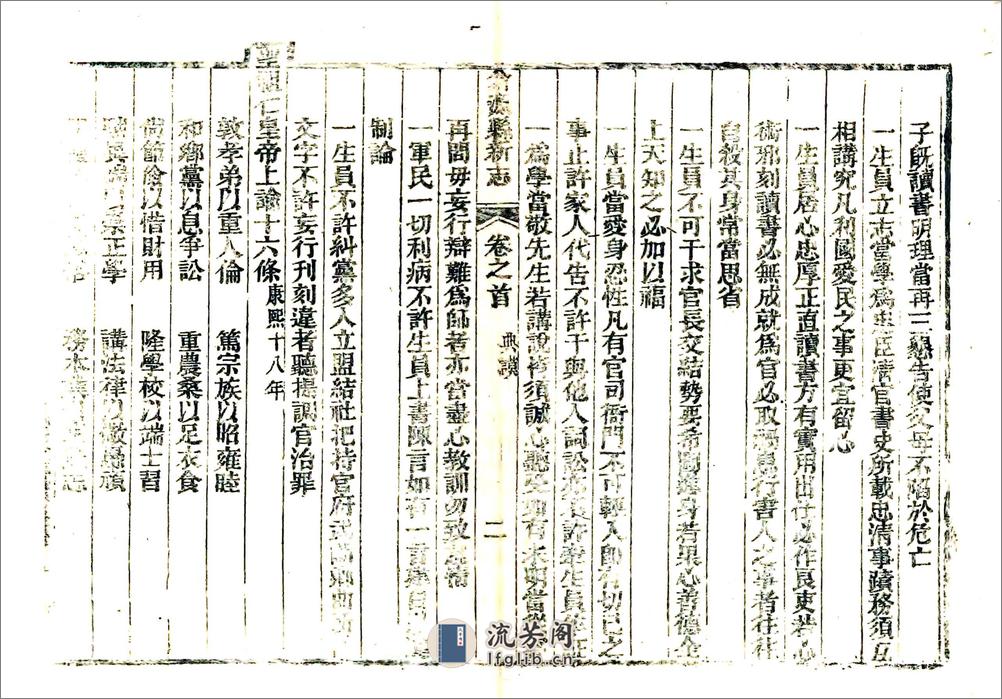 子既讀書明理當再三懇告使父母不陷於危亡
一生員立志當學為忠臣清官書史所載忠清事蹟務須互
相講究凡利國愛民之事更宜留心
一生員居心忠厚正直讀書方有實用出仕必作良吏若心
術邪刻讀書必無成就為官必取禍患行害人之事者往往
自殺其身常當思省
一生員不可干求官長交結勢要希圖進身若果心善德全
上天知之必加以福
一生員當愛身忍性凡有官司衙門不可輕入即有切己之
事止許家人代告不許干與他人詞訟
一為學當敬先生若講說皆須誠心聽受如有未明當
再問毋妄行辯難為師者亦當盡心教訓勿致
一軍民一切利病不許生員上書陳言如有一言
制論
一生員不許糾黨多人立盟結社把持官府武斷鄉曲
文字不許妄行刊刻違者聽提調官治罪
聖祖仁皇帝上諭十六條 康熙十八年
敦孝弟以重人倫 篤宗族以昭雍睦
和鄉黨以息爭訟 重農桑以足衣食
尚節儉以惜財用 隆學校以端士習
以崇正學 講法律以儆愚頑
務本
縣新志 卷之首 典謨 二
流芳阁
lfglib.cn